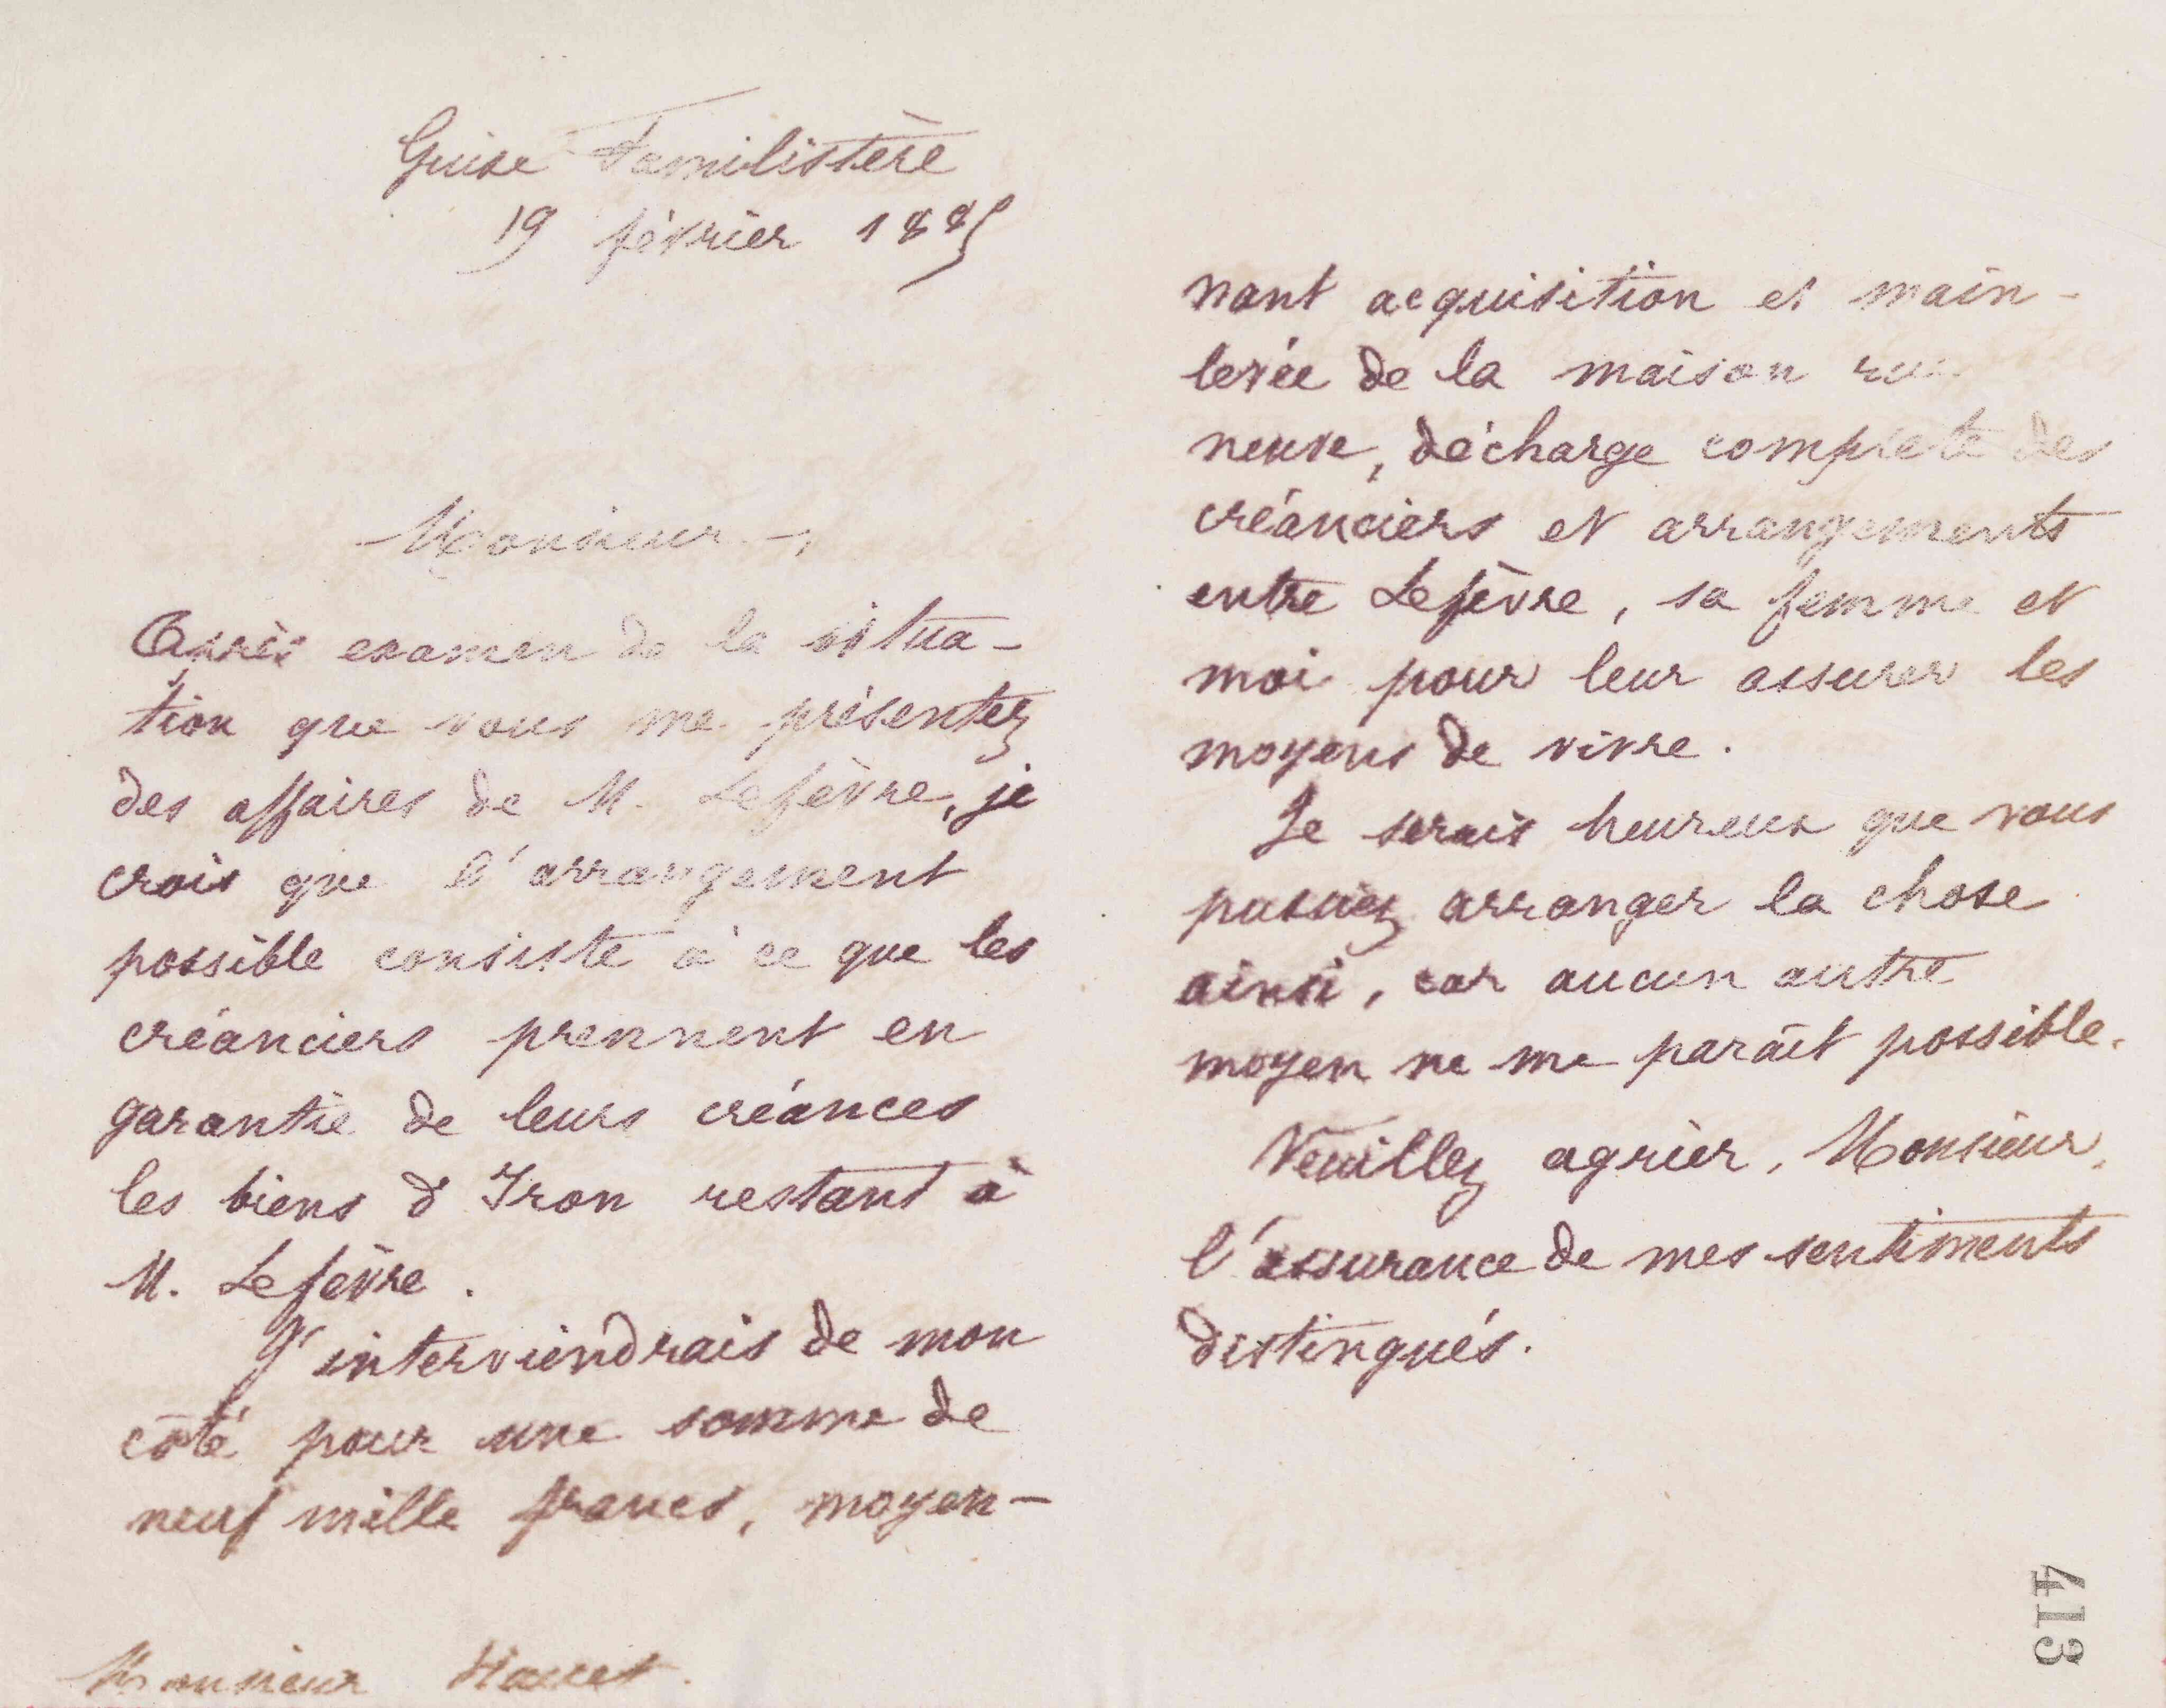 Guise Familistère
19 février 1885
Monsieur,
Après examen de la situa-
tion que vous me présentez
des affaires de M. Lefèvre, je
crois que l'arrangement
possible consiste à ce que les
créanciers prennent en
garantie de leurs créances
les biens d'Iron restant à
M. Lefèvre.
J'interviendrais de mon
côté pour une somme de
neuf mille francs, moyen-
Monsieur
nant acquisition et main-
levée de la maison rue
neuve, décharge complète des
créanciers et arrangements
entre Lefèvre, sa femme et
moi pour leur assurer les
moyens de vivre.
Je serais heureux que vous
pussiez arranger la chose
ainsi, car aucun autre
moyen ne me paraît possible.
Veuillez agréer, Monsieur,
l'assurance de mes sentiments
distingués.
413